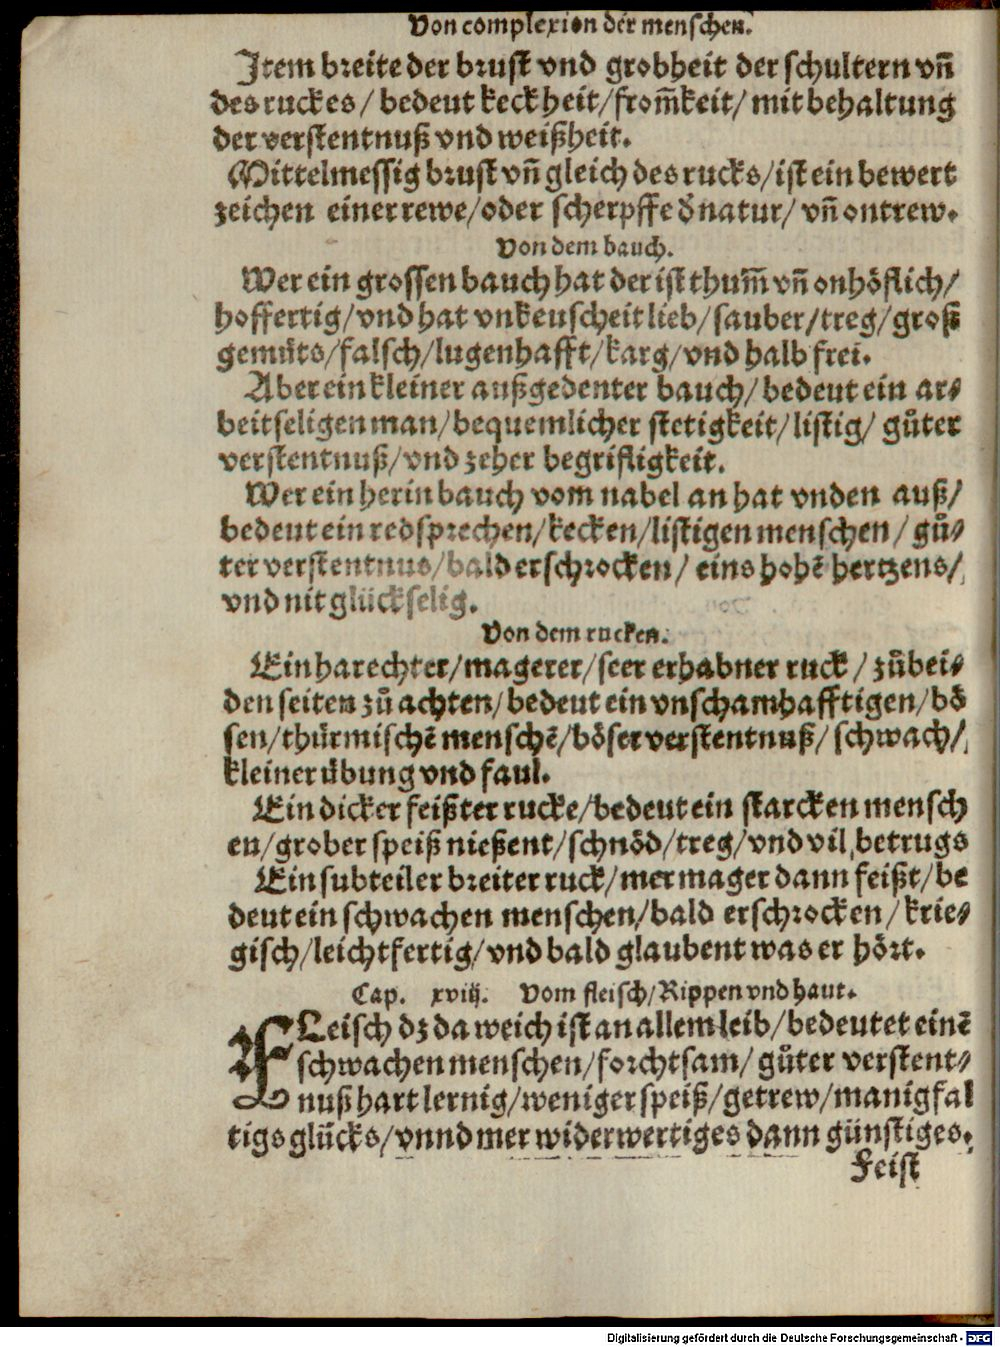 Von complexion der menschen.
Item breite der brust vnd grobheit der schultern vñ
des ruckes/ bedeut keckheit/ from̃keit/ mit behaltung
der verstentnuß vnd weißheit.
Mittelmessig brust vñ gleich des rucks/ ist ein bewert
zeichen einer rewe/ oder scherpffe d̕ natur/ vñ ontrew.
Von dem bauch.
Wer ein grossen bauch hat der ist thum̃ vñ onhöflich/
hoffertig/ vnd hat vnkeuscheit lieb/ sauber/ treg/ groß
gemüts/ falsch/ lugenhafft/ karg/ vnd halb frei.
Aber ein kleiner außgedenter bauch/ bedeut ein ar⸗
beitseligen man/ bequemlicher stetigkeit/ listig/ gůter
verstentnuß/ vnd zeher begrifligkeit.
Wer ein herin bauch vom nabel an hat vnden auß/
bedeut ein redsprechen/ kecken/ listigen menschen/ gů⸗
ter verstentnus/ bald erschrocken/ eins hohē hertzens/
vnd nit glückselig.
Von dem rucken.
Ein harechter/ magerer/ seer erhabner ruck/ zů bei⸗
den seiten zů achten/ bedeut ein vnschamhafftigen/ bö
sen/ thürmischē menschē/ böser verstentnuß/ schwach/
kleiner übung vnd faul.
Ein dicker feißter rucke/ bedeut ein starcken mensch
en/ grober speiß nießent/ schnöd/ treg/ vnd vil betrugs
Ein subteiler breiter ruck/ mer mager dann feißt/ be
deut ein schwachen menschen/ bald erschrocken/ krie⸗
gisch/ leichtfertig/ vnd bald glaubent was er hört.
Cap. xviij. Vom fleisch/ Rippen vnd haut.
FLeisch dz da weich ist an allem leib/ bedeutet einē
schwachen menschen/ forchtsam/ gůter verstent⸗
nuß hart lernig/ weniger speiß/ getrew/ manigfal
tigs glücks/ vnnd mer widerwertiges dann günstiges.
Feist
Digitalisierung gefördert durch die Deutsche Forschungsgemeinschaft - DFG